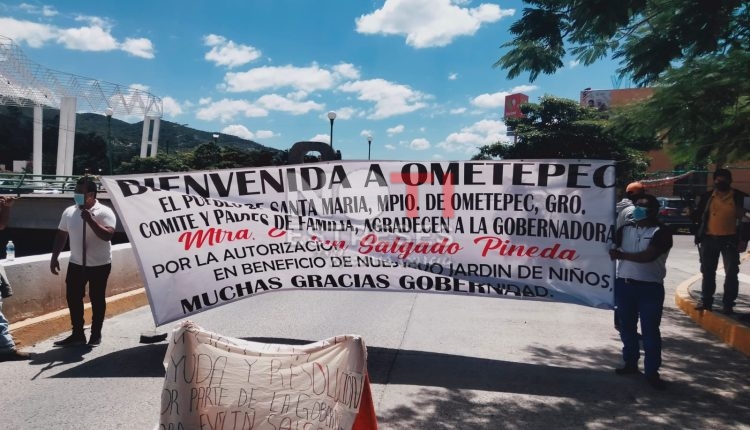 BIENVENIDA A OMETEPEC
EL PUEBLO DE SANTA MARIA, MPIO. DE OMETEPEC, GRO.
COMITE Y PADRES DE FAMILIA, AGRADECEN A LA GOBERNADORA
Mtra. Salgado Pineda
POR LA AUTORIZACIÓN
EN BENEFICIO DE NUESTRO JARDIN DE NIÑOS,
MUCHAS GRACIAS GOBERNIDAD.
AYUDA Y RESOLUCIÓN
POR PARTE DE LA GOBER
EVLYIN SALG